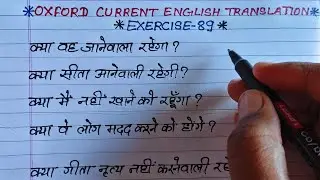 *OXFORD CURRENT ENGLISH TRANSLATION*
*EXERCISE-89*
क्या वह जानेवाला रहेगा?
क्या सीता आनेवाली रहेगी?
क्या मैं नहीं खाने को रहूँगा?
क्या वे लोग मदद करने को होंगे?
क्या गीता नृत्य नहीं करनेवाली रहे